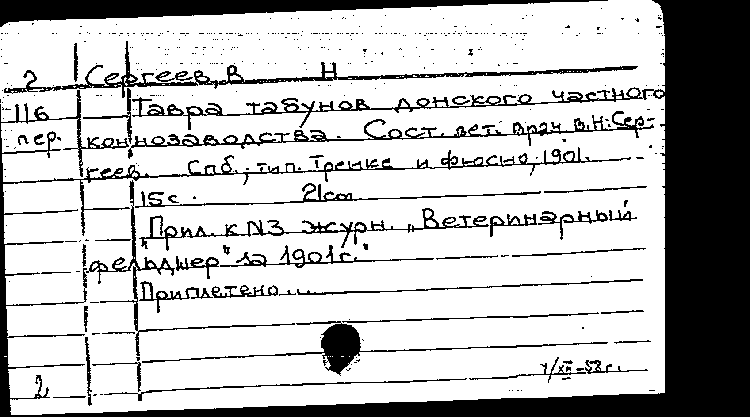 2 Сергеев, В Н
116 Тавра табунов донского частного
пер. коннозаводства. Сост. вет. врач В.Н. Сер-
геев. Спб., тип. Тренке и Фюсно, 1901.
15с. 21см
„Прил. к N3 журн. „Ветеринарный
фельдшер" за 1901г."
Приплетено...
2 1/XII-52г.